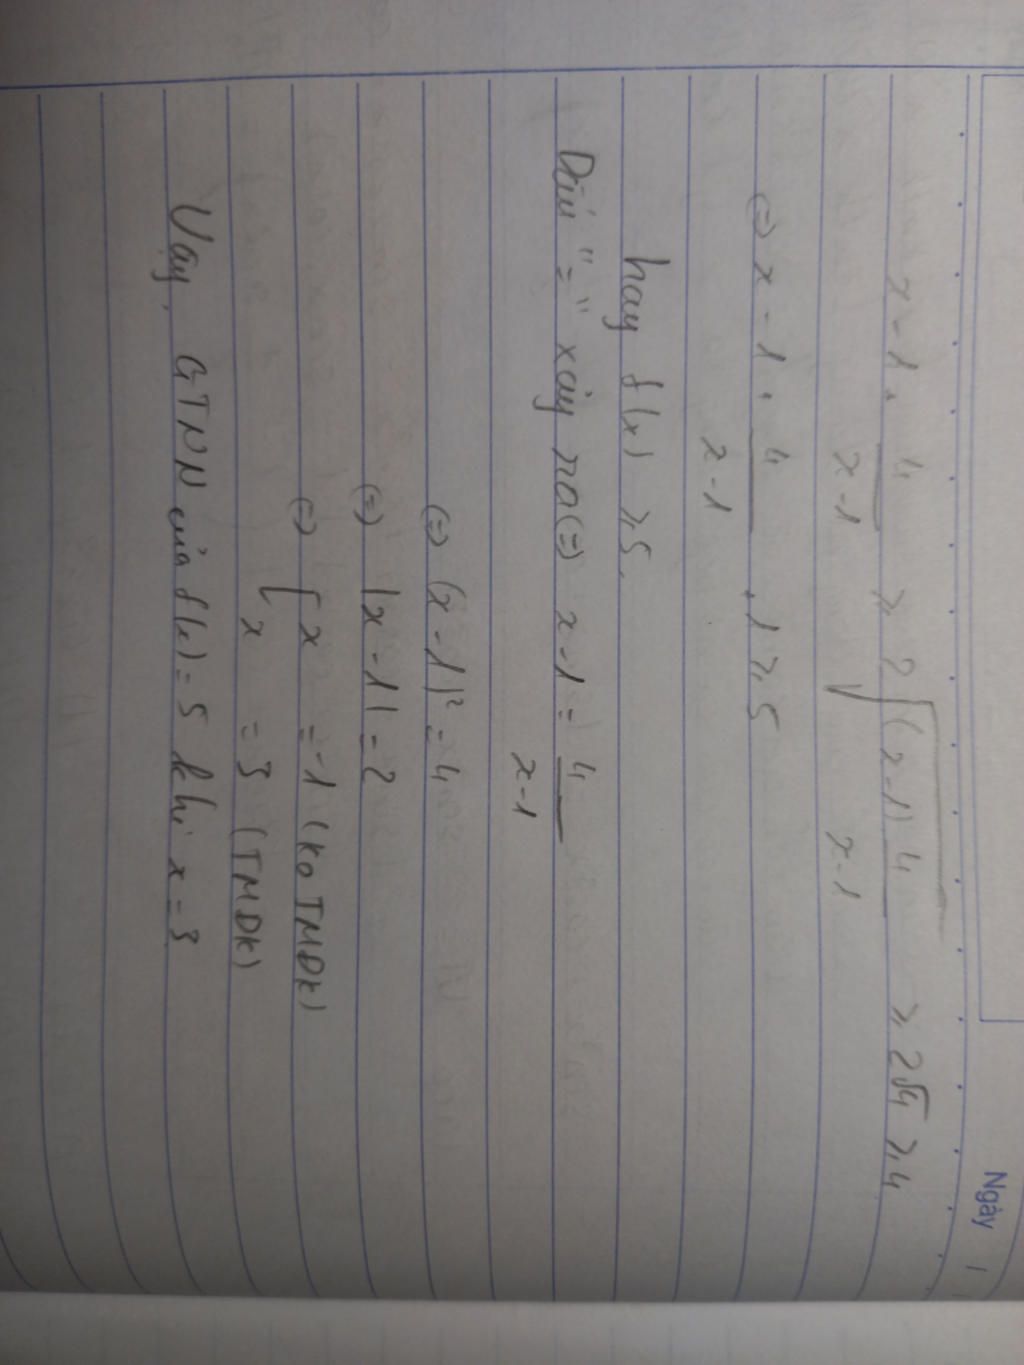 Ngày /
x - 1 + 4/(x-1) ≥ 2√((x-1) 4/(x-1)) ≥ 2√4 ≥ 4
(=) x - 1 + 4/(x-1) + 1 ≥ 5
hay f(x) ≥ 5.
Dấu "=" xảy ra (=) x - 1 = 4/(x-1)
(=) (x - 1)² = 4
(=) |x - 1| = 2
(=) [ x = -1 (ko TMĐK)
x = 3 (TMĐK)
Vậy, GTNN của f(x) = 5 khi x = 3